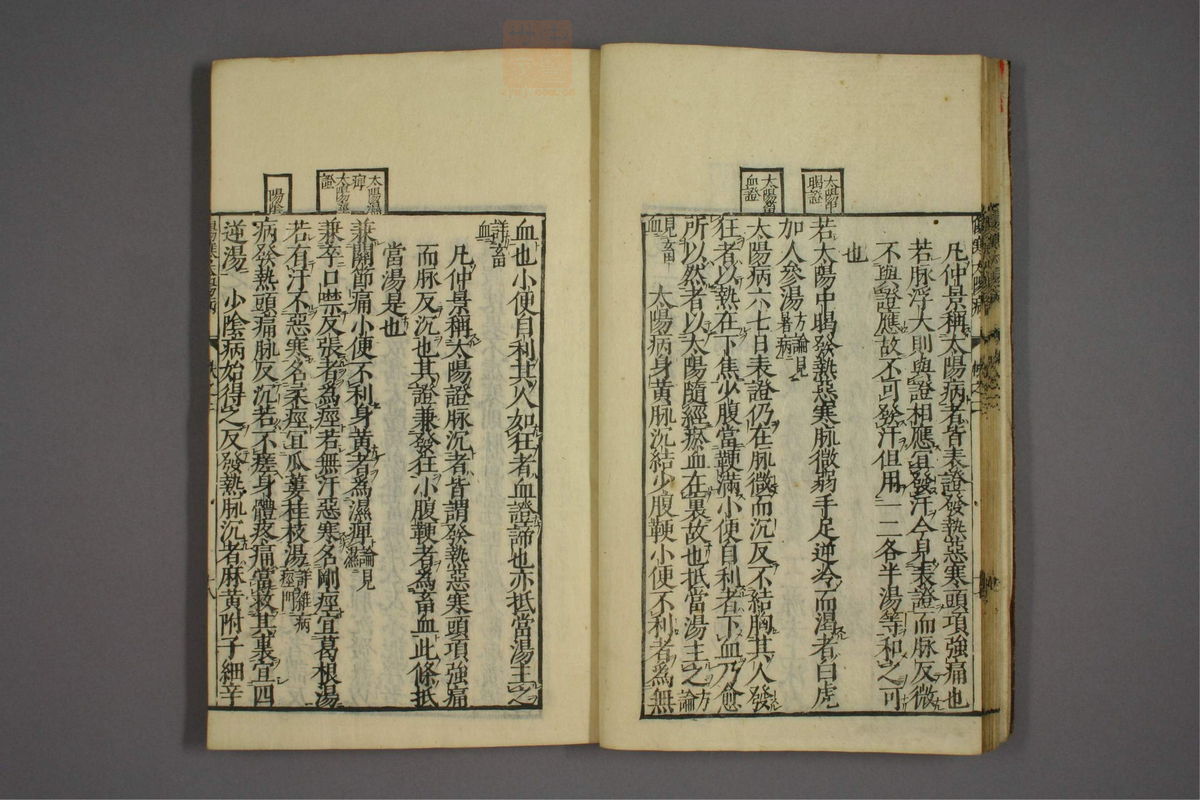 太陽中
暍證
太陽畜
血證
凡仲景稱太陽病者皆表證發熱惡寒頭項強痛也
若脉浮大則與證相應宜發汗今見表證而脉反微
不與證應故不可發汗但用一二各半湯等和之可
也
若太陽中暍發熱惡寒脉微弱手足逆冷而渴者白虎
加人參湯方論見暑病
太陽病六七日表證仍在脉微而沉反不結胸其人發
狂者以熱在下焦少腹當鞕滿小便自利者下血乃愈
所以然者以太陽隨經瘀血在裏故也抵當湯主之方論
見畜血 太陽病身黃脉沉結少腹鞕小便不利者爲無
太陽濕
痺
證
陽陰
血也小便自利其人如狂者血證諦也亦抵當湯主之
詳畜血
凡仲景稱太陽證脉沉者皆謂發熱惡寒頭項強痛
而脉反沉也其證兼發狂小腹鞕者爲畜血此條抵
當湯是也
兼關節痛小便不利身黃者爲濕痺論見濕
兼卒口噤反張者爲痙若無汗惡寒名剛痙宜葛根湯
若有汗不惡寒名柔痙宜瓜蔞桂枝湯詳雜病痙門
病發熱頭痛脉反沉若不瘥身體疼痛當救其裏宜四
逆湯 少陰病始得之反發熱脉沉者麻黃附子細辛